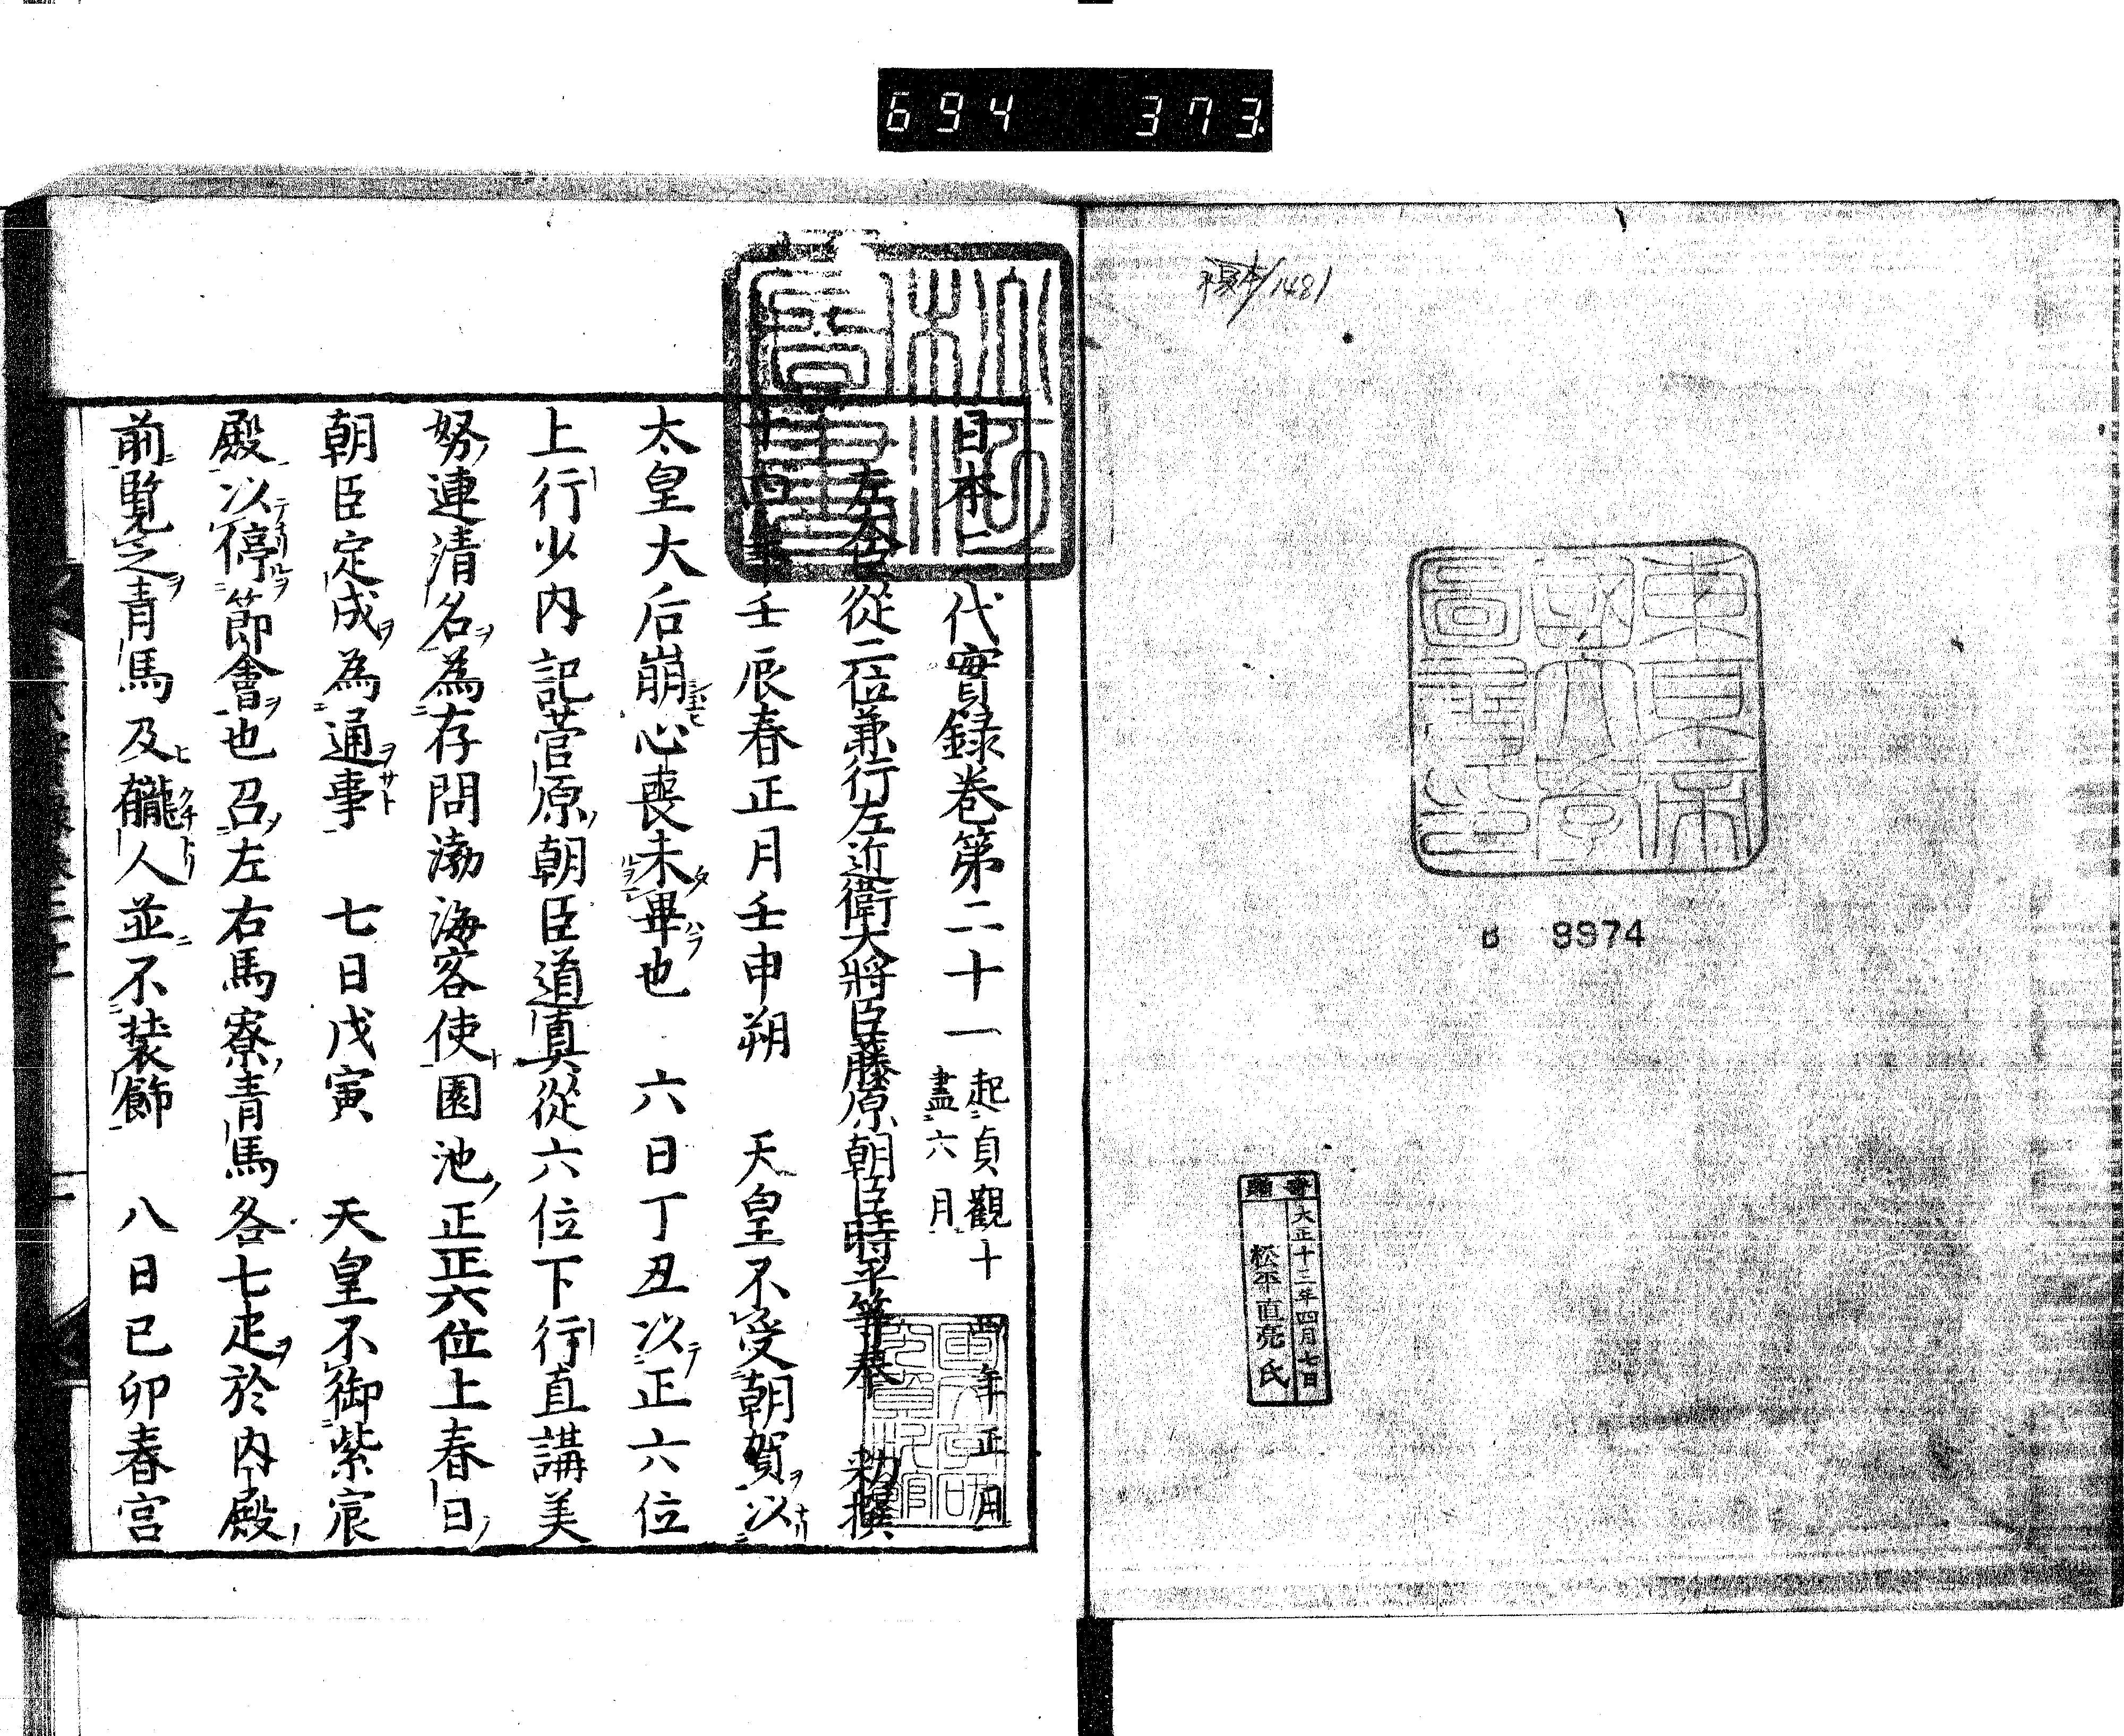 694 373
複本/1481
東京帝國大學圖書印
B 9974
寄贈
大正十三年四月七日
松平直亮氏
日本三代實録卷第二十一 起貞觀十四年正月
盡六月
左大臣從二位兼行左近衛大將臣藤原朝臣時平等奉 勅撰
十四年壬辰春正月壬申朔 天皇不受朝賀以
太皇大后崩心喪未畢也 六日丁丑以正六位
上行少內記菅原朝臣道真從六位下行直講美
努連清名為存問渤海客使園池正正六位上春日
朝臣定成為通事 七日戊寅 天皇不御紫宸
殿以停節會也召左右馬寮青馬各七疋於內殿
前覽之青馬及龓人並不裝飾 八日已卯春宮